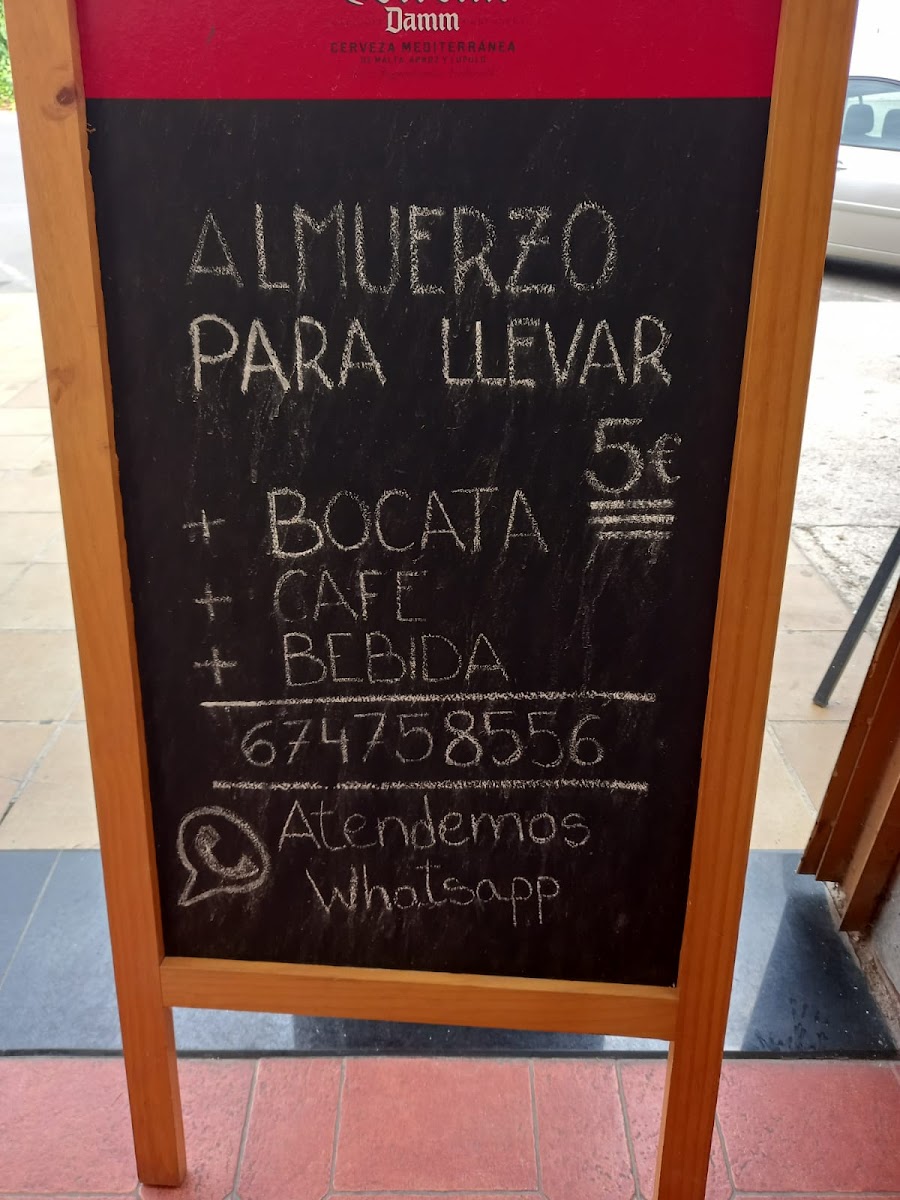 Damm
CERVEZA MEDITERRÁNEA
DE MALTA, ARROZ Y LÚPULO
ALMUERZO
PARA LLEVAR
5€
+ BOCATA
+ CAFE
+ BEBIDA
674758556
Atendemos
Whatsapp